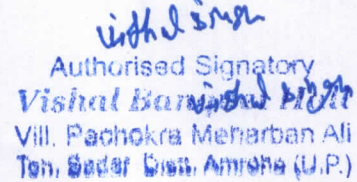 Vishal Singh
Authorised Signatory
Vishal
Vill. Pachokra Meharban Ali
Teh. Sadar Distt. Amroha (U.P.)